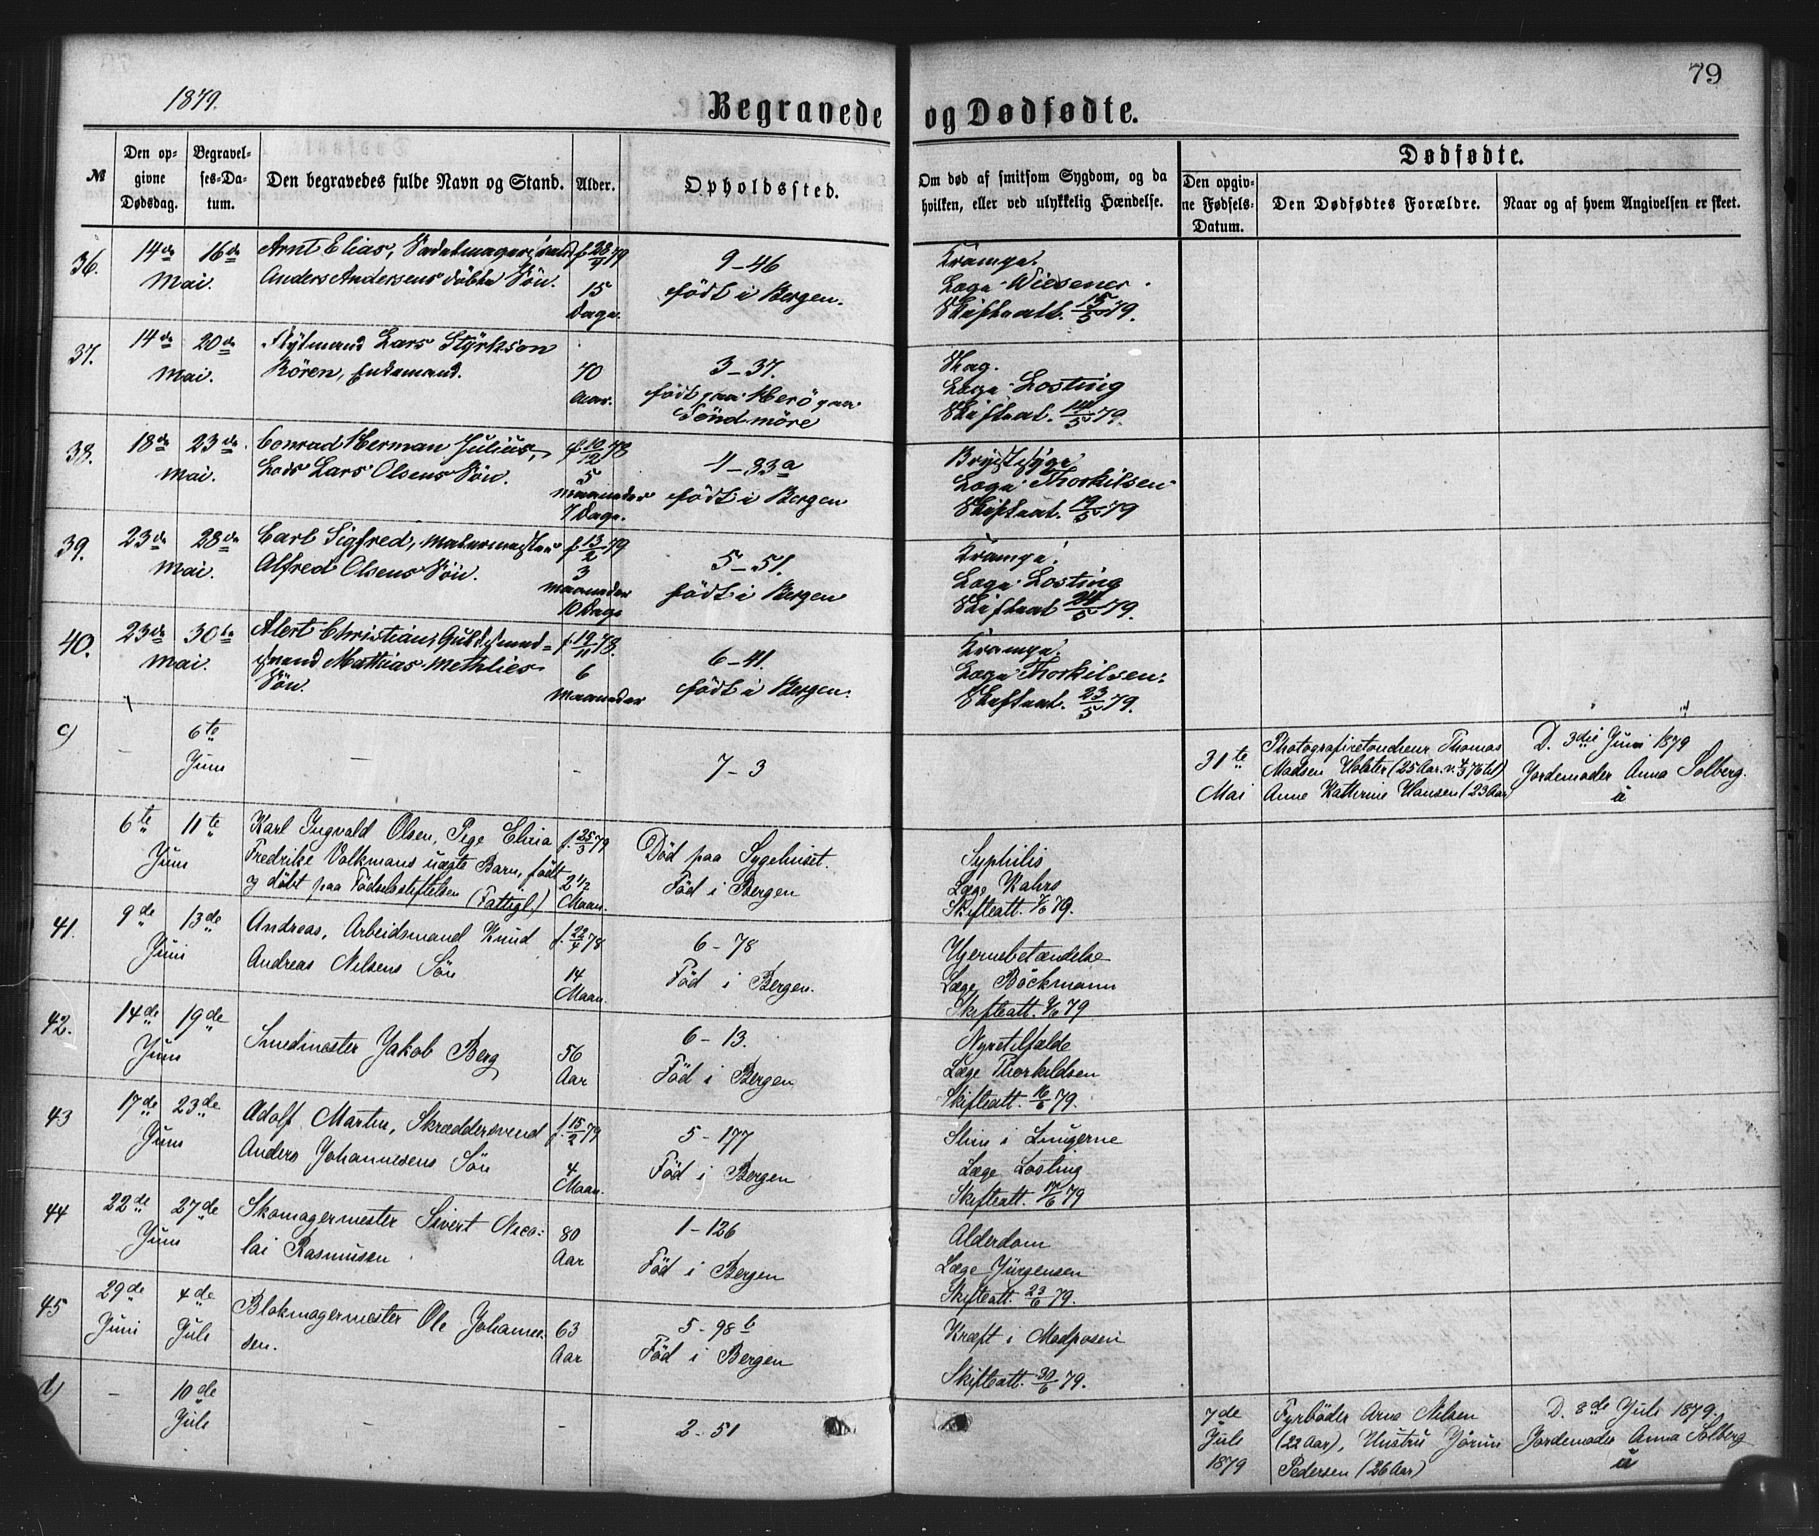 79
1879.
Begravede og Dødfødte.
№
Den op-
givne
Dødsdag.
Begravel-
ses-Da-
tum.
Den begravedes fulde Navn og Stand.
Alder.
Opholdssted.
Om død af smitsom Sygdom, og da
hvilken, eller ved ulykkelig Hændelse.
Dødfødte.
Den opgiv-
ne Fødsels-
Datum.
Den Dødfødtes Forældre.
Naar og af hvem Angivelsen er skeet.
36. 14de Mai. 16de
Arnt Elias, Sadelmager
Anders Andersens døbte Søn.
f. 28/4 79
15
Dage.
9-46
født i Bergen.
Krampe.
Læge Wiesener.
Skifteatt. 15/5 79.
37. 14de Mai. 20de
Lars Styrkson
Rören,
70
Aar.
3-37.
født paa Herö paa
Söndmöre
Slag.
Læge Losting
Skifteatt. 14/5 79.
38. 18de Mai. 23de
Conrad Herman Julius,
Lods Lars Olsens Søn.
f. 10/12 78
5
maaneder
7 Dage.
4-83a
født i Bergen
Brystsyge
Læge Thorkilsen
Skifteatt. 19/5 79
39. 23de Mai. 28de
Carl Sigfred,
Alfred Olsens Søn.
f. 13/2 79
3
maaneder
10 Dage
5-51.
født i Bergen
Krampe.
Læge Losting
Skifteatt 24/5 79.
40. 23de Mai. 30te
Alert Christian, Guldsmed-
svend Mathias Methlies
Søn.
f. 19/11 78.
6
maaneder
6-41.
født i Bergen.
Krampe.
Læge Thorkilsen.
Skifteatt. 23/5 79.
c) - 6te Juni
-
7-3
31te
Mai
Photografiretoucheur Thomas
Madsen Holster (25 Aar.
Anne Kathrine Hansen (23 Aar)
D. 3die Juni 1879
Jordemoder Anna Solberg.
6te Juni 11te
Karl Ingvald Olsen, Pige Elina
Fredrike Volkmans uægte Barn, født
og døbt paa Fødselsstiftelsen (Fattigl.)
f. 25/3 79
2 1/2
Maan.
Död paa Sygehuset.
Föd i Bergen
Syphilis
Læge Kahrs
Skifteatt. 7/6 79.
41. 9de Juni 13de
Andreas, Arbeidsmand Knud
Andreas Nilsens Sön
f. 22/4 78
14
Maan.
6-78
Föd i Bergen.
Hjernebetændelse
Læge Böckmann
Skifteatt. 9/6 79
42. 14de Juni 19de
Smedmester Jakob Berg
56
Aar
6-13.
Föd i Bergen
Nyretilfælde
Læge Thorkildsen
Skifteatt. 16/6 79.
43 17de Juni 23de
Adolf Martin, Skræddersvend
Anders Johannesens Sön
f. 15/2 79
4
Maan.
5-177
Föd i Bergen
Sliim i Lungerne
Læge Losting
Skifteatt. 17/6 79
44 22de Juni 27de
Skomagermester Sivert Nico-
lai Rasmusen
80
Aar
1-126
Föd i Bergen
Alderdom
Læge Jürgensen
Skifteatt. 23/6 79.
45 29de Juni 4de Juli
Blokmagermester Ole Johanne-
sen.
63
Aar
5-98b
Föd i Bergen
Kræft i Madposen
Skifteatt. 30/6 79.
d) - 10de Juli
-
-
2-51
7de
Juli
1879
Fyrböder Arne Nilsen
(22 Aar), Hustru Jörine
Pedersen (26 Aar)
D. 8de Juli 1879.
Jordemoder Anna Solberg